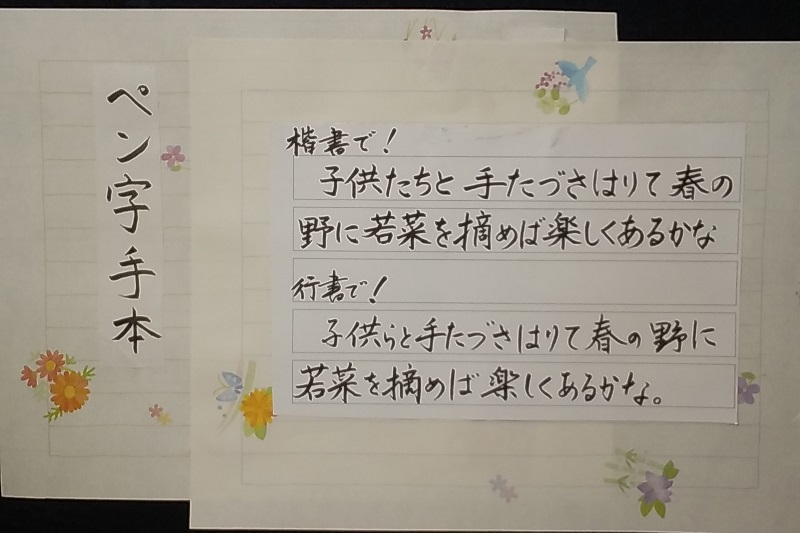 ペン字手本
楷書で!
子供たちと手たづさはりて春の
野に若菜を摘めば楽しくあるかな
行書で!
子供らと手たづさはりて春の野に
若菜を摘めば楽しくあるかな。